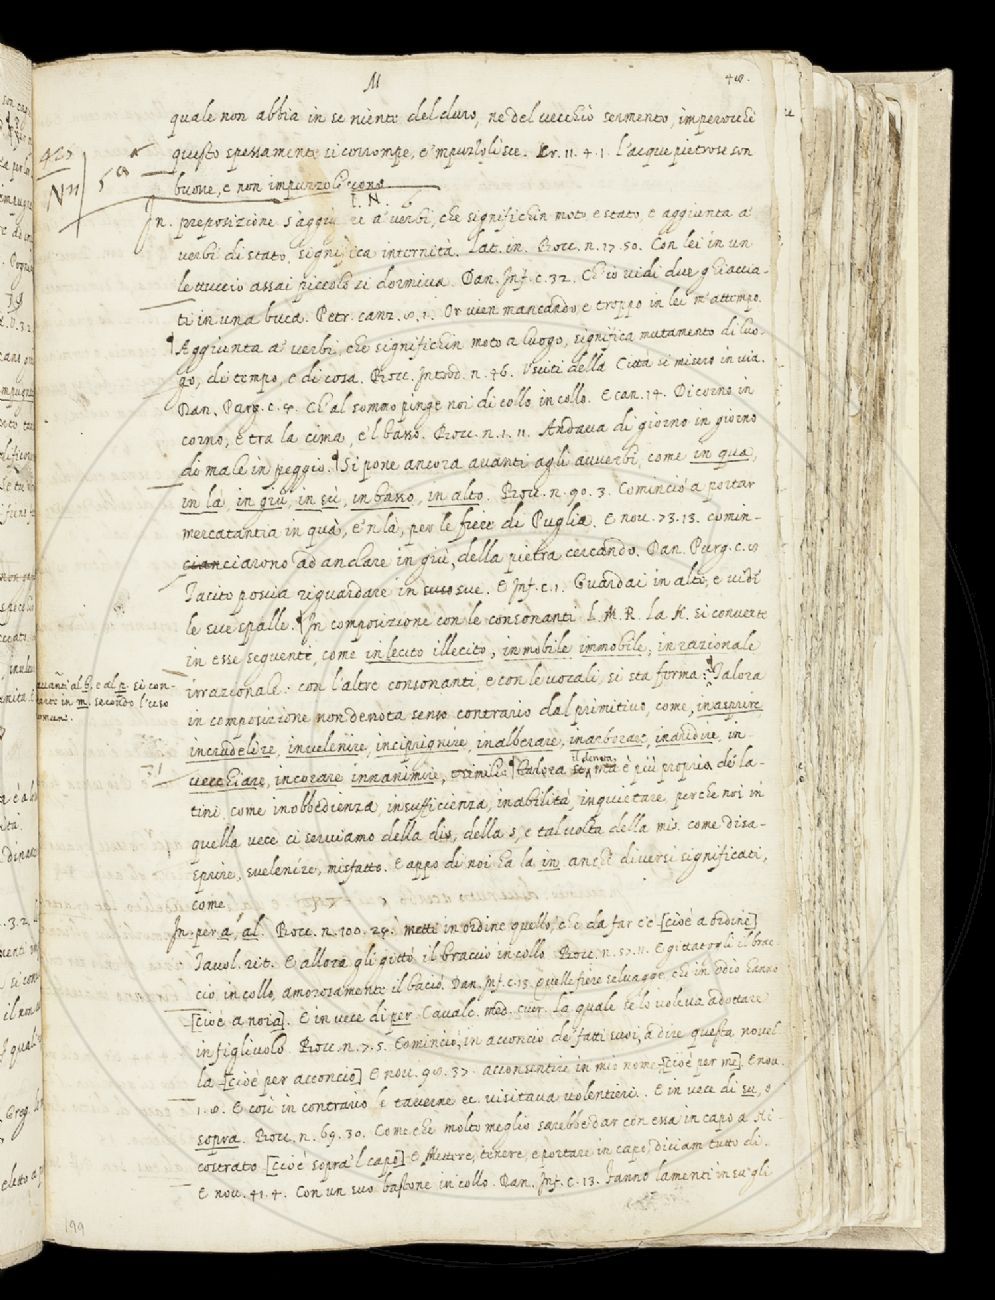 M
48.
quale non abbia in se niente del duro, ne del vecchio sermento, imperocchè
questo spessamente si corrompe, e 'mpuzzolisce. Cr. 11. 4. 1. l'acque pietrose son
buone, e non impuzzoliscono
I. N.
In. preposizione s'aggiu re a' verbi, che significhin moto e stato, e aggiunta a'
verbi di stato, significa internità. Lat. in. Bocc. n. 17. 50. Con lei in un
lettuccio assai piccolo si dormiva. Dan. Inf. c. 32. Ch' io vidi due ghiaccia-
ti in una buca. Petr. canz. 8. 1. Or vien mancando, e troppo in lei m'attempo.
Aggiunta a' verbi, che significhin moto a luogo, significa mutamento di luo-
go, di tempo, e di cosa. Bocc. Introd. n. 46. Usciti della Città si misero in via.
Dan. Purg. c. Ch'al sommo pinge noi di collo in collo. E can. 14. Di corno in
corno, e tra la cima, e 'l basso. Bocc. n. 1. 11. Andava di giorno in giorno
di male in peggio. Si pone ancora avanti agli avverbi, come in qua,
in là, in giù, in su, in basso, in alto. Bocc. n. 90. 3. Cominciò a portar
mercatantia in quà, e 'n là, per le fiere di Puglia. E nov. 73. 13. comin-
cianciarono ad andare in giù, della pietra cercando. Dan. Purg. c. 8
Tacito poscia riguardare in suso sue. E Inf. c. 1. Guardai in alto, e vidi
le sue spalle. In composizione con le consonanti L. M. R. la N. si converte
in esse seguente, come inlecito illecito, inmobile immobile, inrazionale
irrazionale: con l'altre consonanti, e con le vocali, si sta ferma: Talora
avanti al b, e al p. si con-
uerte in m, secondo l'uso
comuni.
in composizione non denota senso contrario dal primitivo, come, inasprire
incrudelire, invelenire, inciprignire, inalberare, inarborare, inaridire, in-
vecchiare, incorare innanimire, e simili. Talora il denota è più proprio de' la-
tini, come inobbedienza, insufficienza, inabilità, inquietare, perche noi in
quella vece ci serviamo della dis, della s, e talvolta della mis. come disa-
sprire, svelenire, misfatto. E appo di noi ha la in anche diversi significati,
come.
In. per a', al. Bocc. n. 100. 24. metti in ordine quello, che da far c'è [cioè a ordine]
Tavol. rit. E allora gli gittò il braccio in collo. Bocc. n. 57. 11. E gittatogli il brac
cio in collo, amorosamente il baciò. Dan. Inf. c. 13. Quelle fiere selvagge, che in odio hanno
[cioè a noia]. E in vece di per. Cavalc. med. cuor. La quale se lo voleva adottare
in figliuolo. Bocc. n. 7. 5. Cominciò, in acconcio de' fatti suoi, a dire questa novel
la [cioè per acconcio] E nov. 98. 37. acconsentire in mio nome [cioè per me]. E nov.
1. 8. E così in contrario le taverne ec. visitava volentieri. E in vece di su, o
sopra. Bocc. n. 69. 30. Come che molto meglio sarebbe dar con essa in capo a Ni-
costrato [cioè sopra 'l capo] E Mettere, tenere, e portare in capo, diciam tutto dì.
E nov. 41. 4. Con un suo bastone in collo. Dan. Inf. c. 13. Fanno lamenti in su gli
199